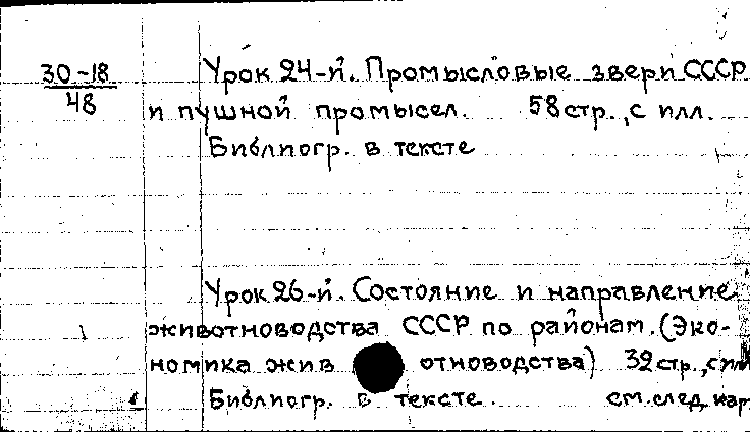 30-18
48
Урок 24-й. Промысловые звери СССР
и пушной промысел. 58 стр., с илл.
Библиогр. в тексте
Урок 26-й. Состояние и направление
животноводства СССР по районам. (Эко-
номика жив отноводства) 32 стр., с илл
Библиогр. в тексте. см. след. кар